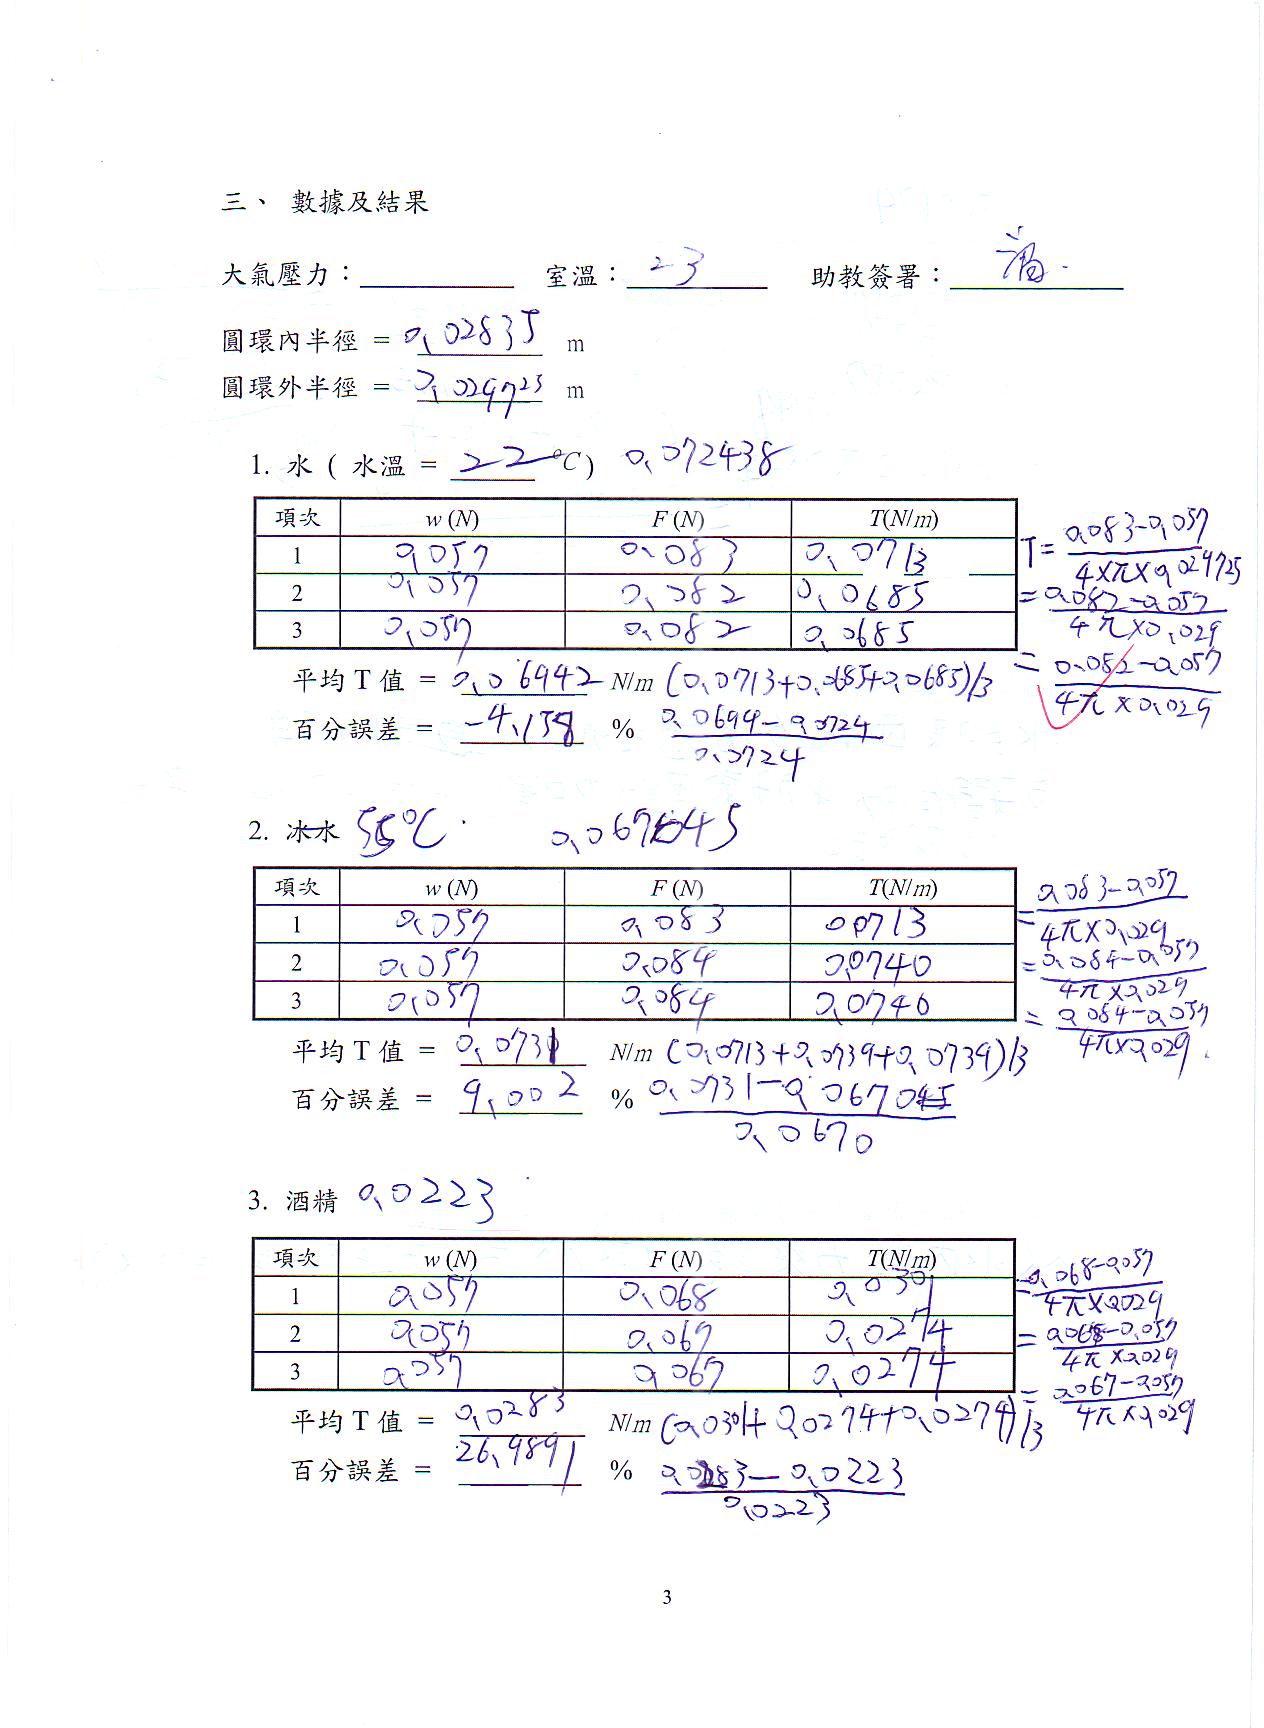 三、 數據及結果
大氣壓力： 室溫：23 助教簽署：
圓環內半徑 = 0.02835 m
圓環外半徑 = 0.029725 m
1. 水 ( 水溫 = 22 °C) 0.072438
項次 w (N) F (N) T(N/m)
1 0.057 0.083 0.0713 T = (0.083-0.057)/(4×π×0.029725)
2 0.057 0.082 0.0685 = (0.082-0.057)/(4π×0.029)
3 0.057 0.082 0.0685 = (0.082-0.057)/(4π×0.029)
平均 T 值 = 0.06942 N/m (0.0713+0.0685+0.0685)/3
百分誤差 = -4.138 % (0.0694-0.0724)/0.0724
2. 冰水 55°C 0.067045
項次 w (N) F (N) T(N/m)
1 0.057 0.083 0.0713 = (0.083-0.057)/(4π×0.029)
2 0.057 0.084 0.0740 = (0.084-0.057)/(4π×0.029)
3 0.057 0.084 0.0740 = (0.084-0.057)/(4π×0.029)
平均 T 值 = 0.0731 N/m (0.0713+0.0739+0.0739)/3
百分誤差 = 9.002 % (0.0731-0.067045)/0.0670
3. 酒精 0.0223
項次 w (N) F (N) T(N/m)
1 0.057 0.068 0.0301 = (0.068-0.057)/(4π×0.029)
2 0.057 0.067 0.0274 = (0.068-0.057)/(4π×0.029)
3 0.057 0.067 0.0274 = (0.067-0.057)/(4π×0.029)
平均 T 值 = 0.0283 N/m (0.0301+0.0274+0.0274)/3
百分誤差 = 26.9891 % (0.0283-0.0223)/0.0223
3